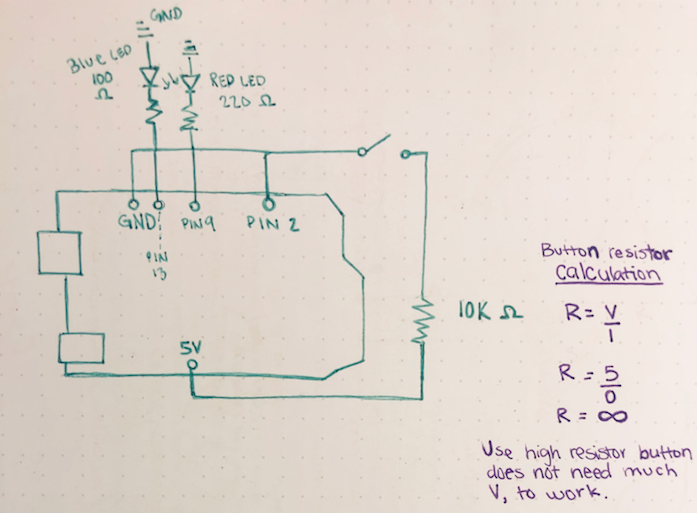 GND
Blue LED
100
Ω
RED LED
220 Ω
GND
PIN
13
PIN 9
PIN 2
5V
10K Ω
Button resistor
Calculation
R = V
I
R = 5
0
R = ∞
Use high resistor button
does not need much
V, to work.